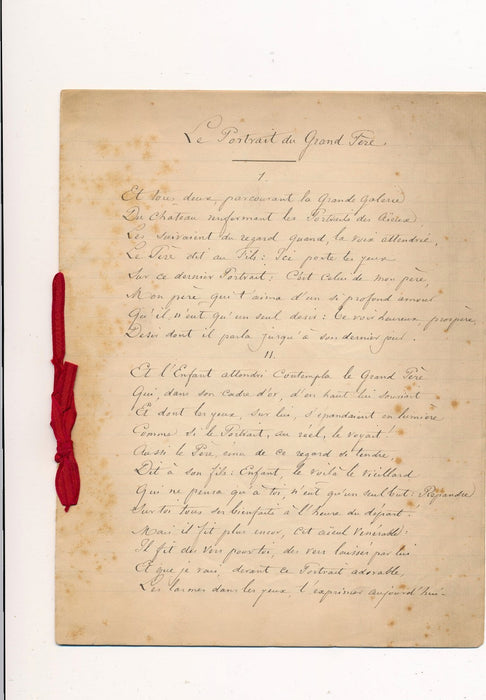 Le Portrait du Grand Père
1.
Et tous deux parcourant la Grande Galerie
Du Chateau renfermant les Portraits des Aïeux
Les suivaient du regard quand, la voix attendrie,
Le Père dit au Fils: Ici porte les yeux
Sur ce dernier Portrait: C'est celui de mon père,
Mon père, qui t'aima d'un si profond amour
Qu'il n'eut qu'un seul desir: Te voir heureux, prospère,
Desir dont il parla jusqu'à son dernier jour.
11.
Et l'Enfant attendri Contempla le Grand Père
Qui, dans son Cadre d'or, d'en haut lui souriait
Et dont les yeux, sur lui, s'épandaient en lumière
Comme si le Portrait, au réel, le voyait!
Aussi le Père, ému de ce regard si tendre,
Dit à son fils: Enfant, le voilà le vieillard
Qui ne pensa qu'à toi, n'eut qu'un seul but: Répandre
Sur toi tous ses bienfaits à l'heure du départ.
Mais il fit plus encor, cet aïeul Vénérable
Il fit des Vers pour toi, des vers laissés par lui
Et que je vais, devant ce Portrait adorable,
Les larmes dans les yeux, t'exprimer aujourd'hui.